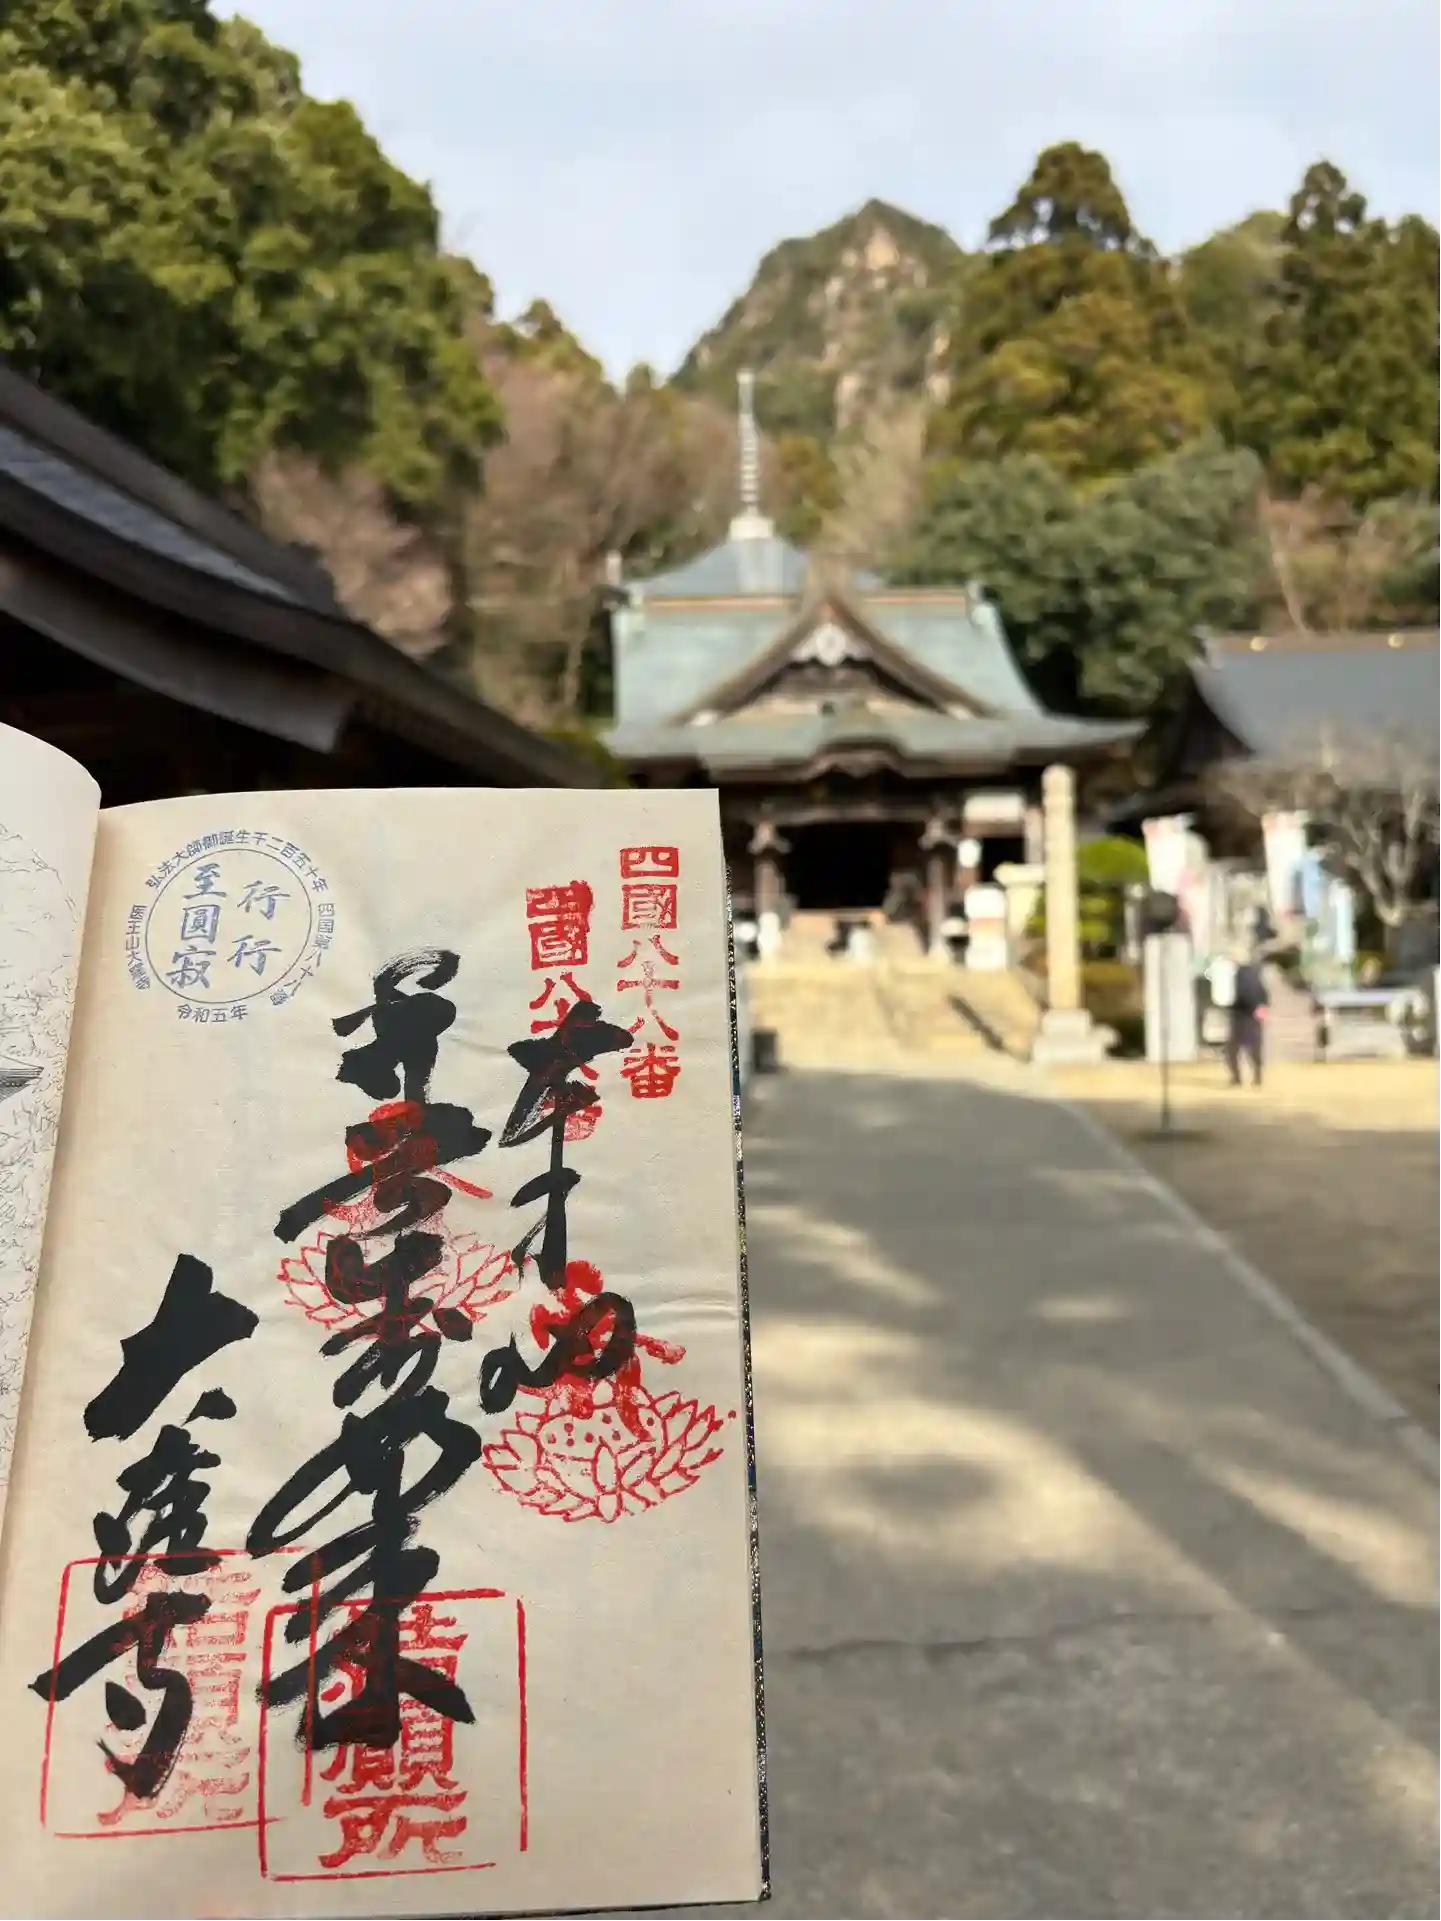 四國八十八番
四國八十八番
奉納
薬師如来
大窪寺
結願所
結願所
弘法大師御誕生千二百五十年
四国第八十八番
医王山大窪寺
行行
至圓寂
令和五年